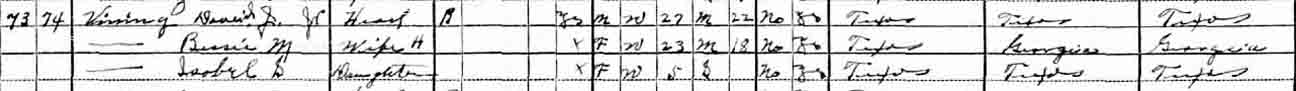 73 74 Vining David J. Jr Head R Yes M W 27 M 22 No Yes Texas Texas Texas
— Bessie M Wife H X F W 23 M 18 No Yes Texas Georgia Georgia
— Isobel S Daughter X F W 5 S No Texas Texas Texas